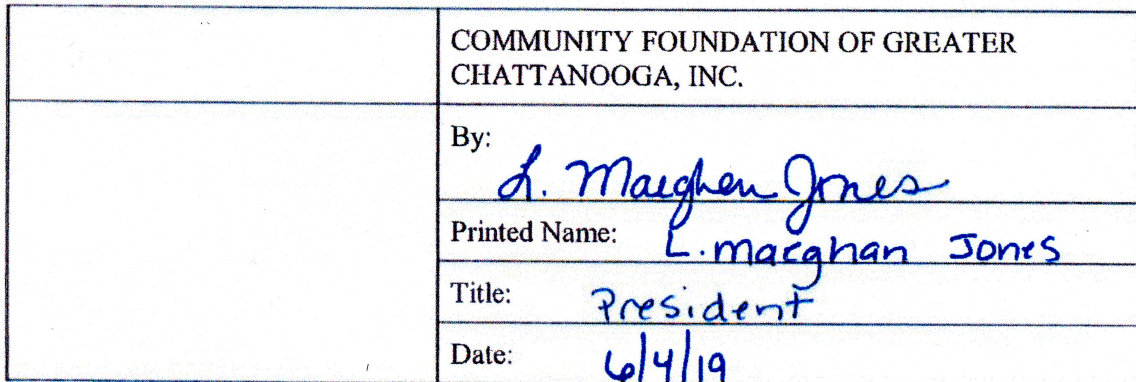 COMMUNITY FOUNDATION OF GREATER
CHATTANOOGA, INC.
By:
L. Maeghen Jones
Printed Name: L. maeghan Jones
Title: President
Date: 6/4/19